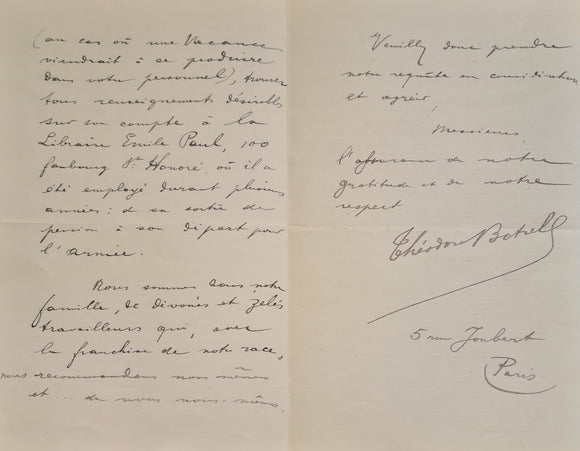 (au cas où une Vacance
viendrait à se produire
dans votre personnel), trouver
tous renseignements désirables
sur son compte à la
Libraire Emile Paul, 100
faubourg St Honoré, où il a
été employé durant plusieurs
années: de sa sortie de
pension à son départ pour
l'armée.
Nous sommes dans notre
famille, de dévoués et zélés
travailleurs qui, avec
la franchise de notre race,
nous recommandons nous mêmes
et... de nous nous-mêmes.
Veuillez donc prendre
notre requête en considération
et agréer,
Messieurs,
l'assurance de notre
gratitude et de notre
respect
Théodore Botrel
5 rue Joubert
Paris